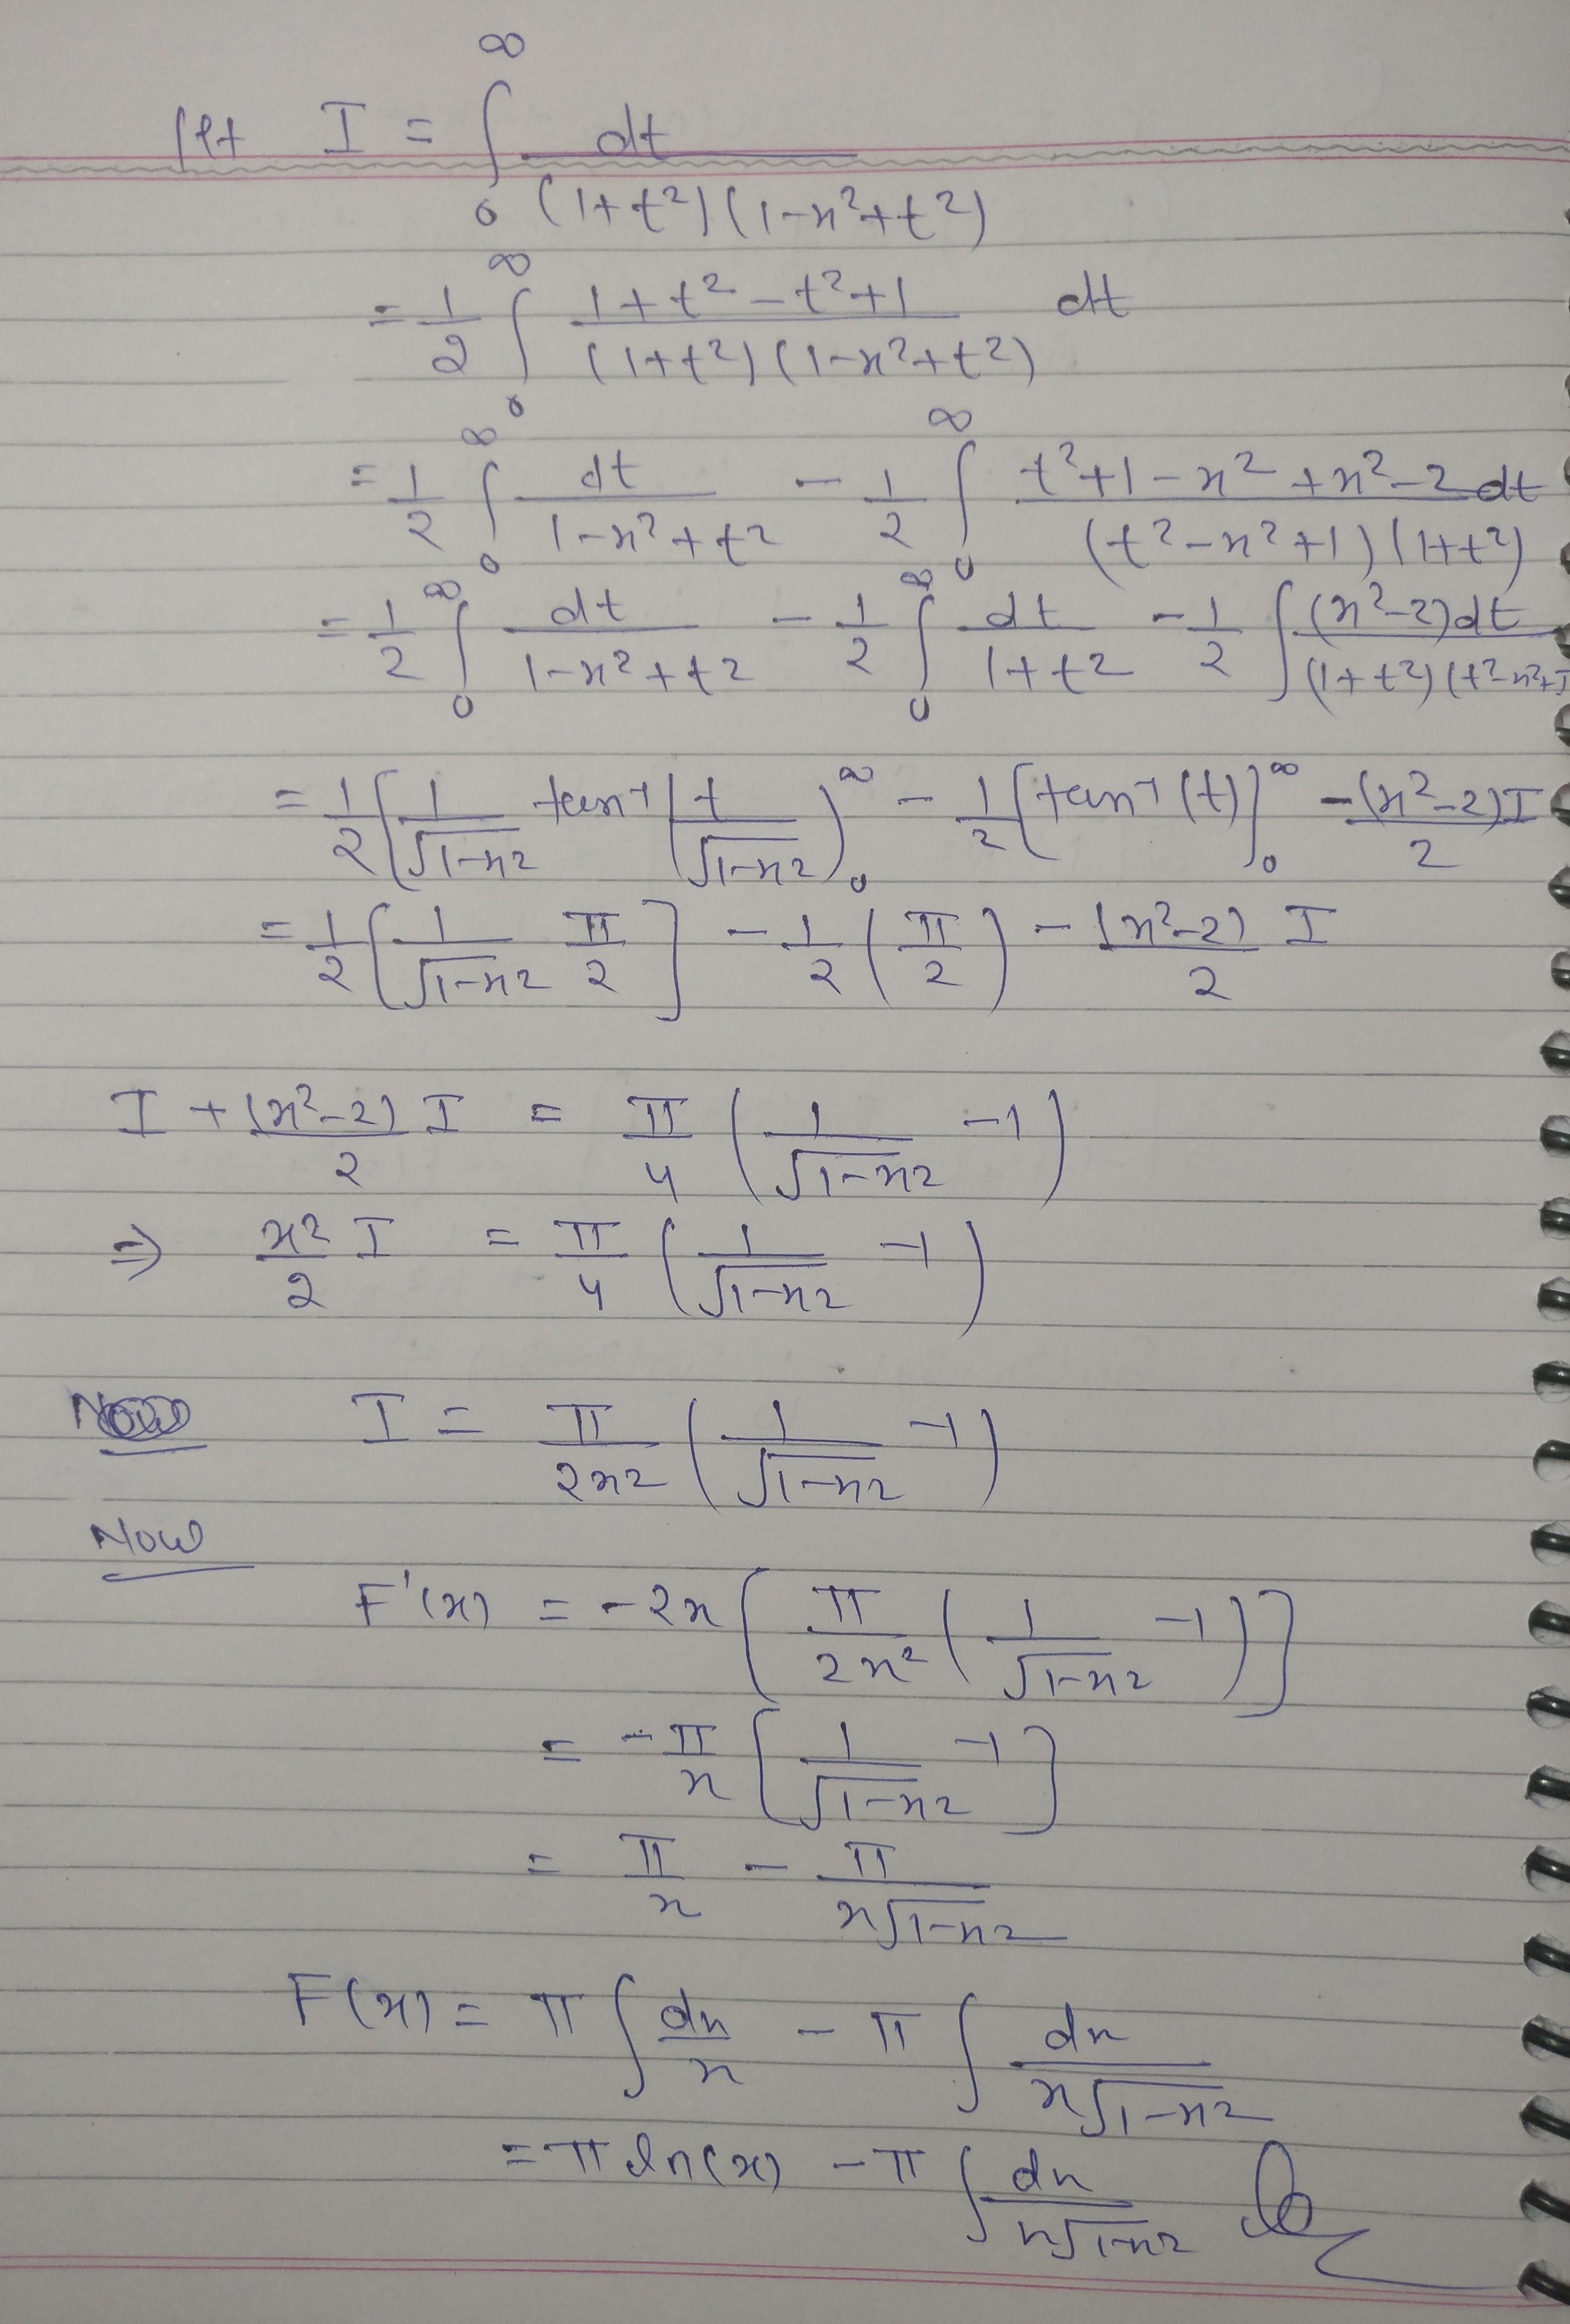 let I = ∫₀^∞ dt / (1+t²)(1-x²+t²)
= 1/2 ∫₀^∞ (1+t²-t²+1) / (1+t²)(1-x²+t²) dt
= 1/2 ∫₀^∞ dt / (1-x²+t²) - 1/2 ∫₀^∞ (t²+1-x²+x²-2 dt) / (t²-x²+1)(1+t²)
= 1/2 ∫₀^∞ dt / (1-x²+t²) - 1/2 ∫₀^∞ dt / (1+t²) - 1/2 ∫ (x²-2)dt / (1+t²)(t²-x²+1
= 1/2 [1/√(1-x²) tan⁻¹(t/√(1-x²))]₀^∞ - 1/2 [tan⁻¹(t)]₀^∞ - (x²-2)I / 2
= 1/2 [1/√(1-x²) π/2] - 1/2 (π/2) - (x²-2)/2 I
I + (x²-2)/2 I = π/4 (1/√(1-x²) -1)
⇒ x²/2 I = π/4 (1/√(1-x²) -1)
I = π/2x² (1/√(1-x²) -1)
Now
F'(x) = -2x [π/2x² (1/√(1-x²) -1)]
= -π/x [1/√(1-x²) -1]
= π/x - π/x√(1-x²)
F(x) = π ∫ dx/x - π ∫ dx/x√(1-x²)
= π ln(x) - π ∫ dx/x√(1-x²)